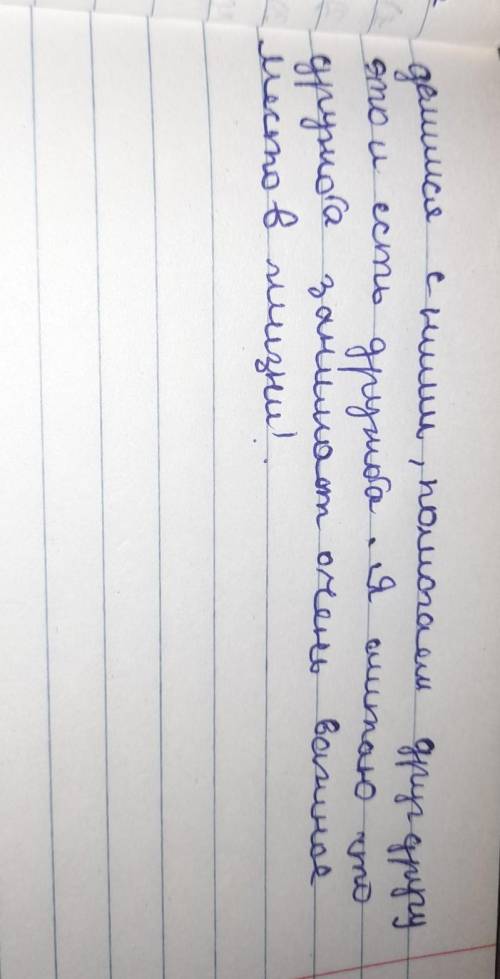 делимся с ними, помогаем друг другу
это и есть дружба. Я считаю что
дружба занимает очень важное
место в жизни!